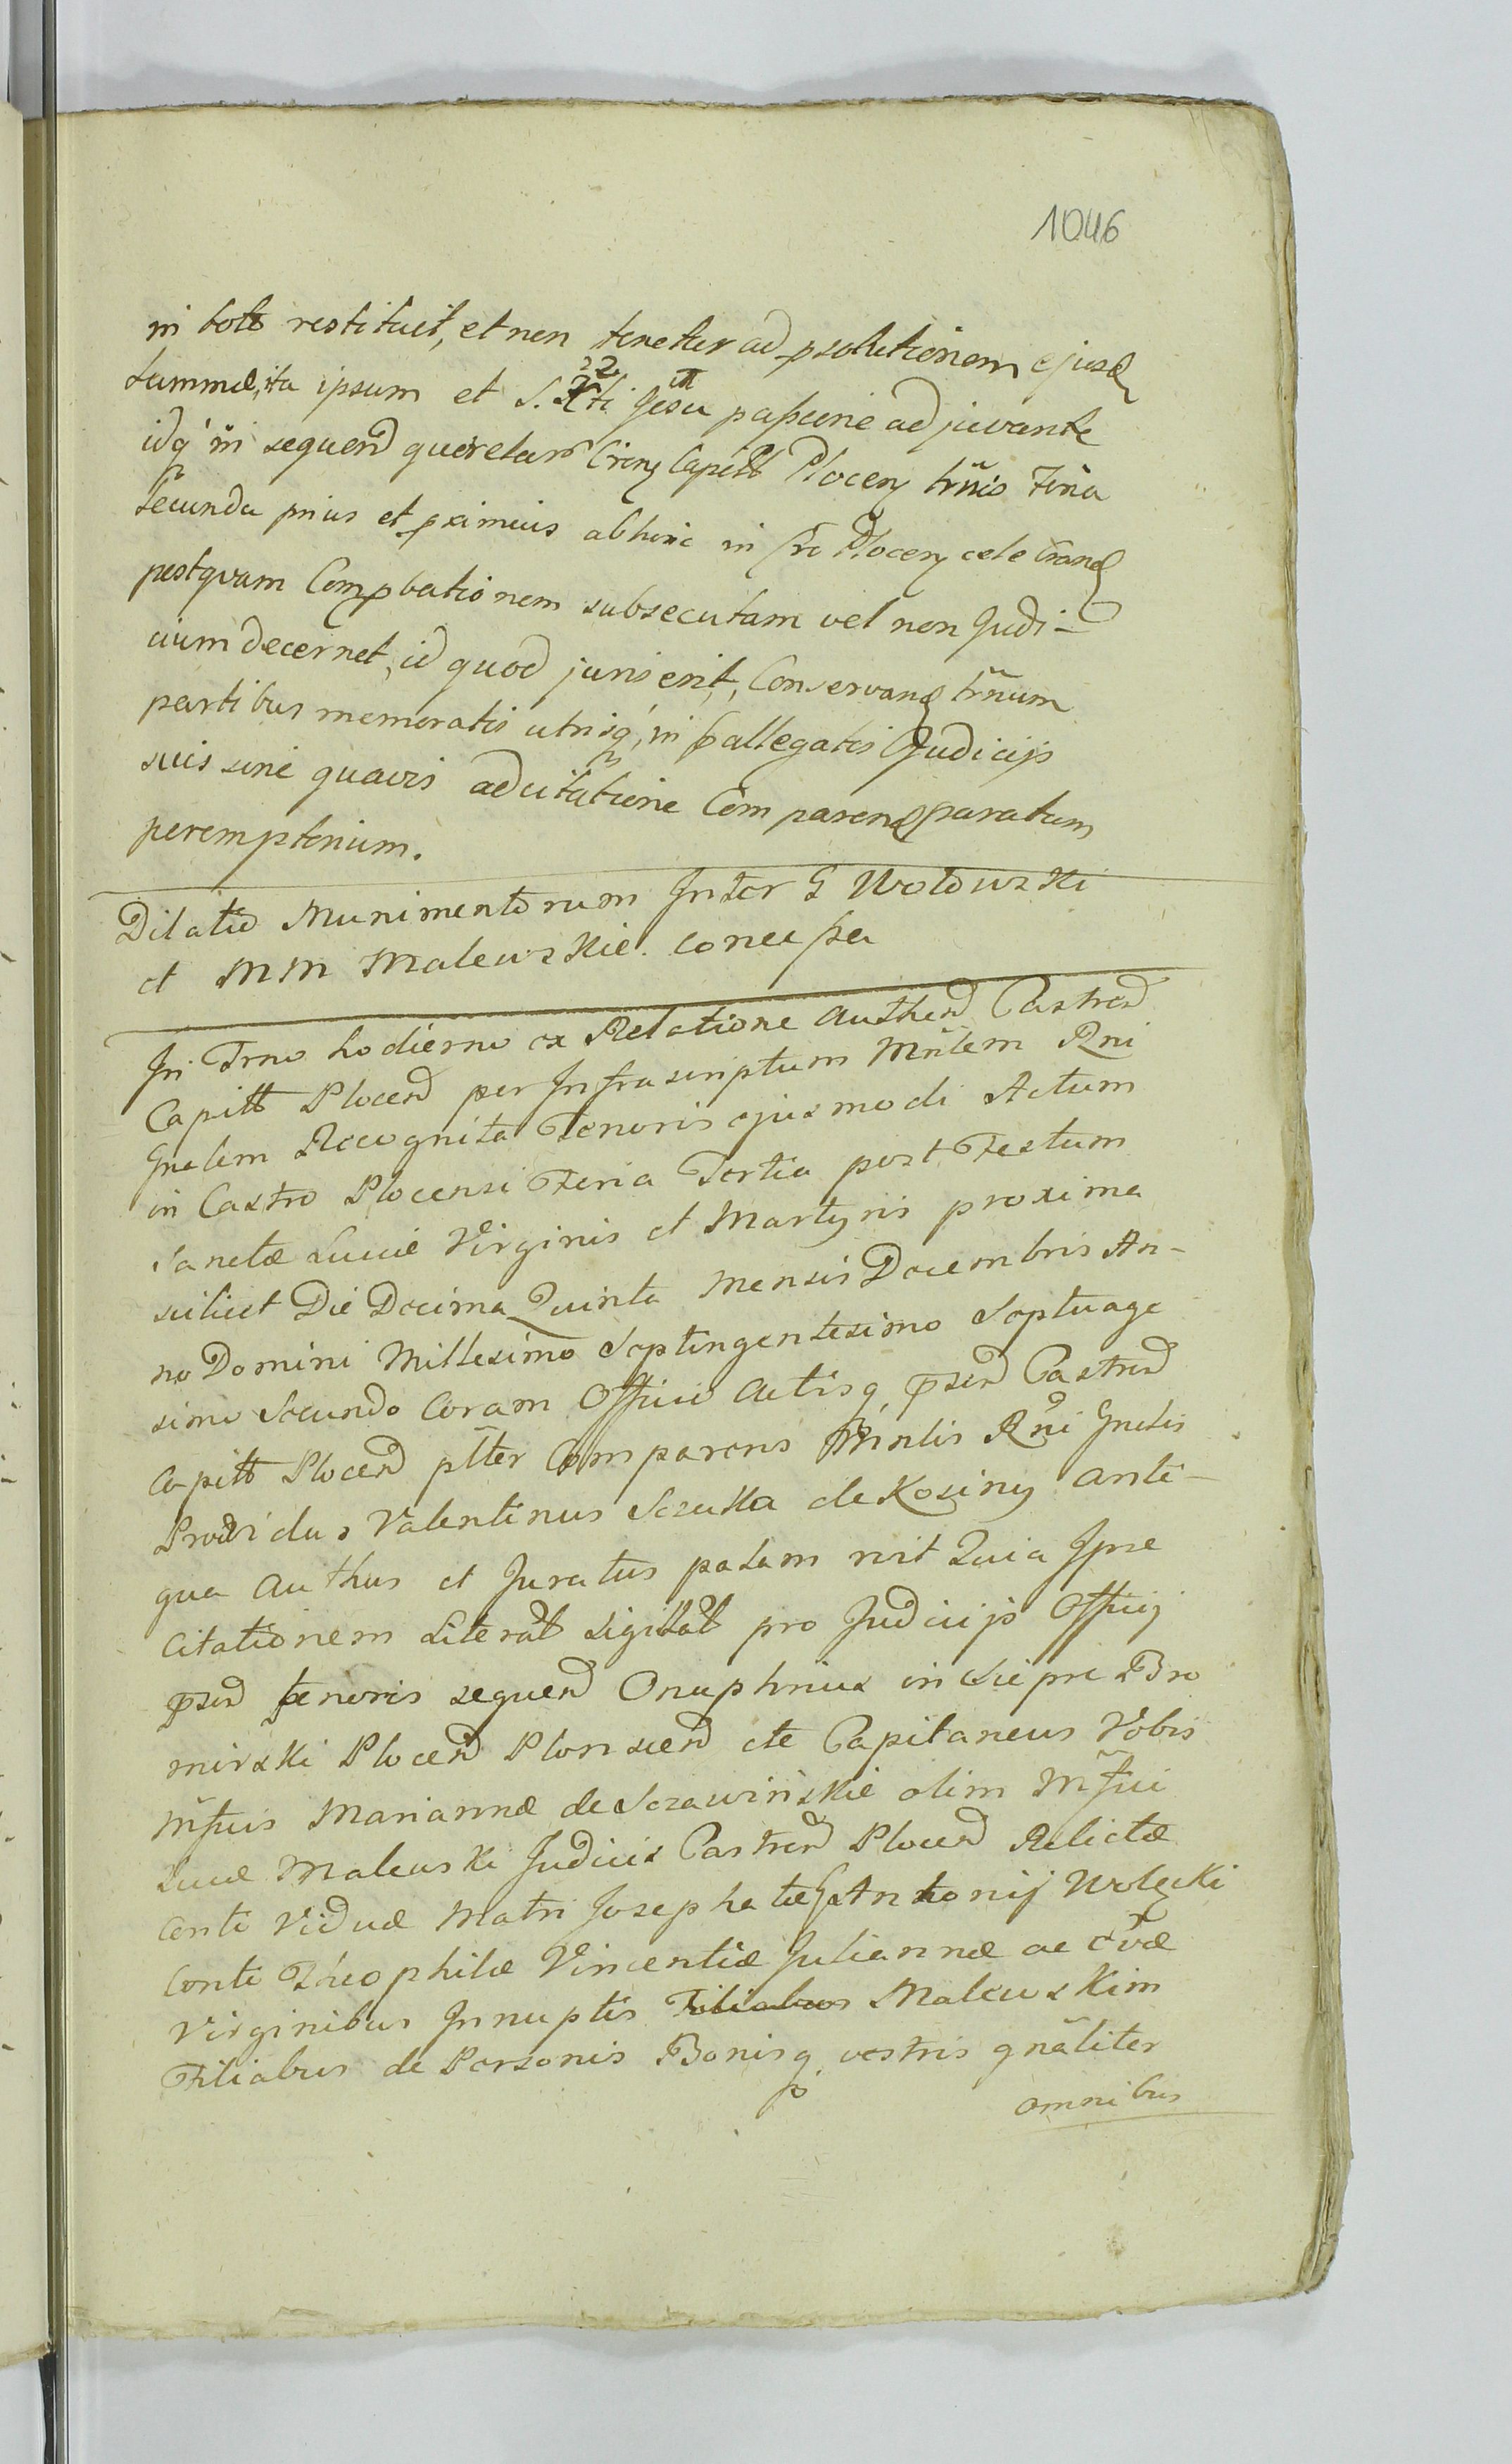 1046
in toto restituit, et non tenetur ad psolutionem ejusd
summæ, ita ipsum et S. Xti Jesu passione adjuvante
idq in sequend querelar Cieny Capitt Plocen trnis Feria
secunda prius et proximius abhinc in Cro Plocen celebrand
postquam Compbationem subsecutam vel non Judi-
cium decernet, id quod juris erit, Conservand trnum
partibus memoratis utrisq, in pallegatis Judicijs
suis sine quavis adcitatione Comparend paratum
peremptorium.
Dilatio Munimentorum Inter G Wołowski
et MM Malewskie. concessa
In Trno hodierno ex Relatione Authend Castrend
Capitt Plocend per Infrascriptum Mnlem Rni
Gnalem Recognita Tenoris ejusmodi Actum
in Castro Plocensi Feria Tertia post Festum
Sanctæ Luciæ Virginis et Martyris proxima
scilicet Die Decima Quinta Mensis Decembris An-
no Domini Millesimo Septingentesimo Septuage
simo Secundo Coram Officio Actisq psend Castrend
Capitt Plocend pltter Comparens Mnlis Rni Gnalis
Providus Valentinus Szczuka de Koziny anti-
qua Authus et Juratus palam rvit Quia Ipse
Citationem Literat Sigillat pro Judicijs Officij
psend tenoris sequend Onuphrius in Siepre Bro
mirski Plocend Plonscend cte Capitaneus Vobis
Mfcis Mariannæ de Szczawinskie olim Mfci
Lucæ Malewski Judicis Castrend Plocend Relictæ
Conti Viduæ Matri Josephatæ G Antonij Wolęcki
Conti Theophilæ Vincentiæ Juliannæ ac Evæ
Virginibus Innuptis Filiabus Malewskim
Filiabus de Personis Bonisq vestris gnaliter
omnibus